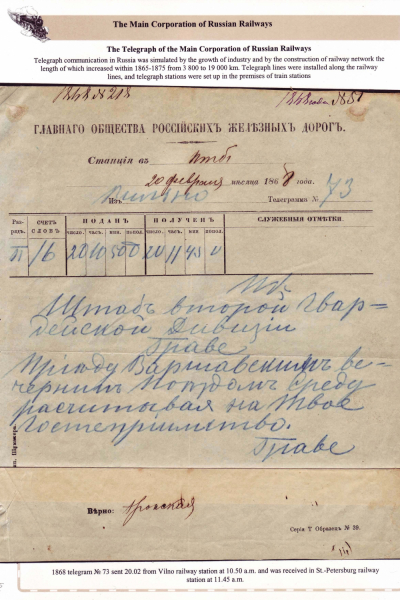 The Main Corporation of Russian Railways
The Telegraph of the Main Corporation of Russian Railways
Telegraph communication in Russia was simulated by the growth of industry and by the construction of railway network the
length of which increased within 1865-1875 from 3 800 to 19 000 km. Telegraph lines were installed along the railway
lines, and telegraph stations were set up in the premises of train stations
1868 № 218
ГЛАВНАГО ОБЩЕСТВА РОССІЙСКИХЪ ЖЕЛѢЗНЫХЪ ДОРОГЪ.
Станція въ Птбг
20 февраля мѣсяца 1868 года.
Изъ Вильно Телеграмма № 73
Раз-рядъ. СЧЕТЪ СЛОВЪ ПОДАНА ПОЛУЧЕНА СЛУЖЕБНЫЯ ОТМѢТКИ.
число. часъ. мин. число. часъ. мин.
П 16 20 10 50 0 20 11 45 0
Штабъ второй Гвар=
дейской Дивизіи
Граве
Пріѣду Варшавскимъ ве=
чернимъ поѣздомъ Среду
расчитывая на твое
Гостепріимство.
Граве
Вѣрно:
Серія Т Образецъ № 39.
1868 telegram № 73 sent 20.02 from Vilno railway station at 10.50 a.m. and was received in St.-Petersburg railway
station at 11.45 a.m.